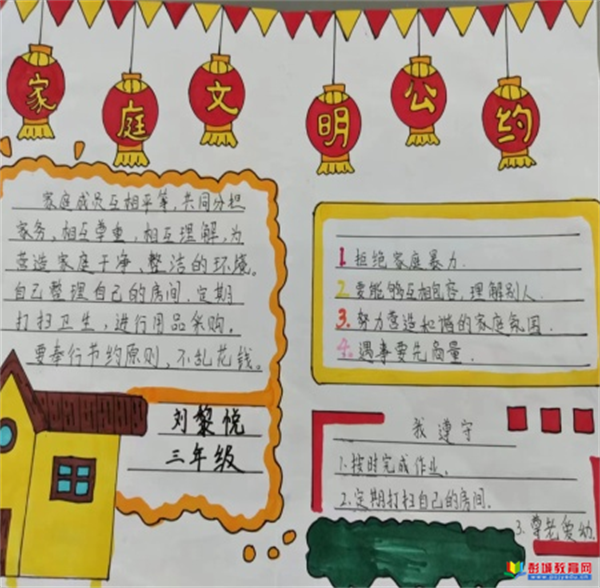 家庭文明公约
家庭成员互相平等,共同分担
家务、相互尊重,相互理解,为
营造家庭干净、整洁的环境。
自己整理自己的房间,定期
打扫卫生,进行用品采购。
要奉行节约原则,不乱花钱。
刘黎悦
三年级
1.拒绝家庭暴力.
2.要能够互相包容,理解别人.
3.努力营造和谐的家庭氛围.
4.遇事要先商量.
我遵守
1.按时完成作业、
2.定期打扫自己的房间.
3.尊老爱幼.
彭城教育网
www.pcjyedu.cn